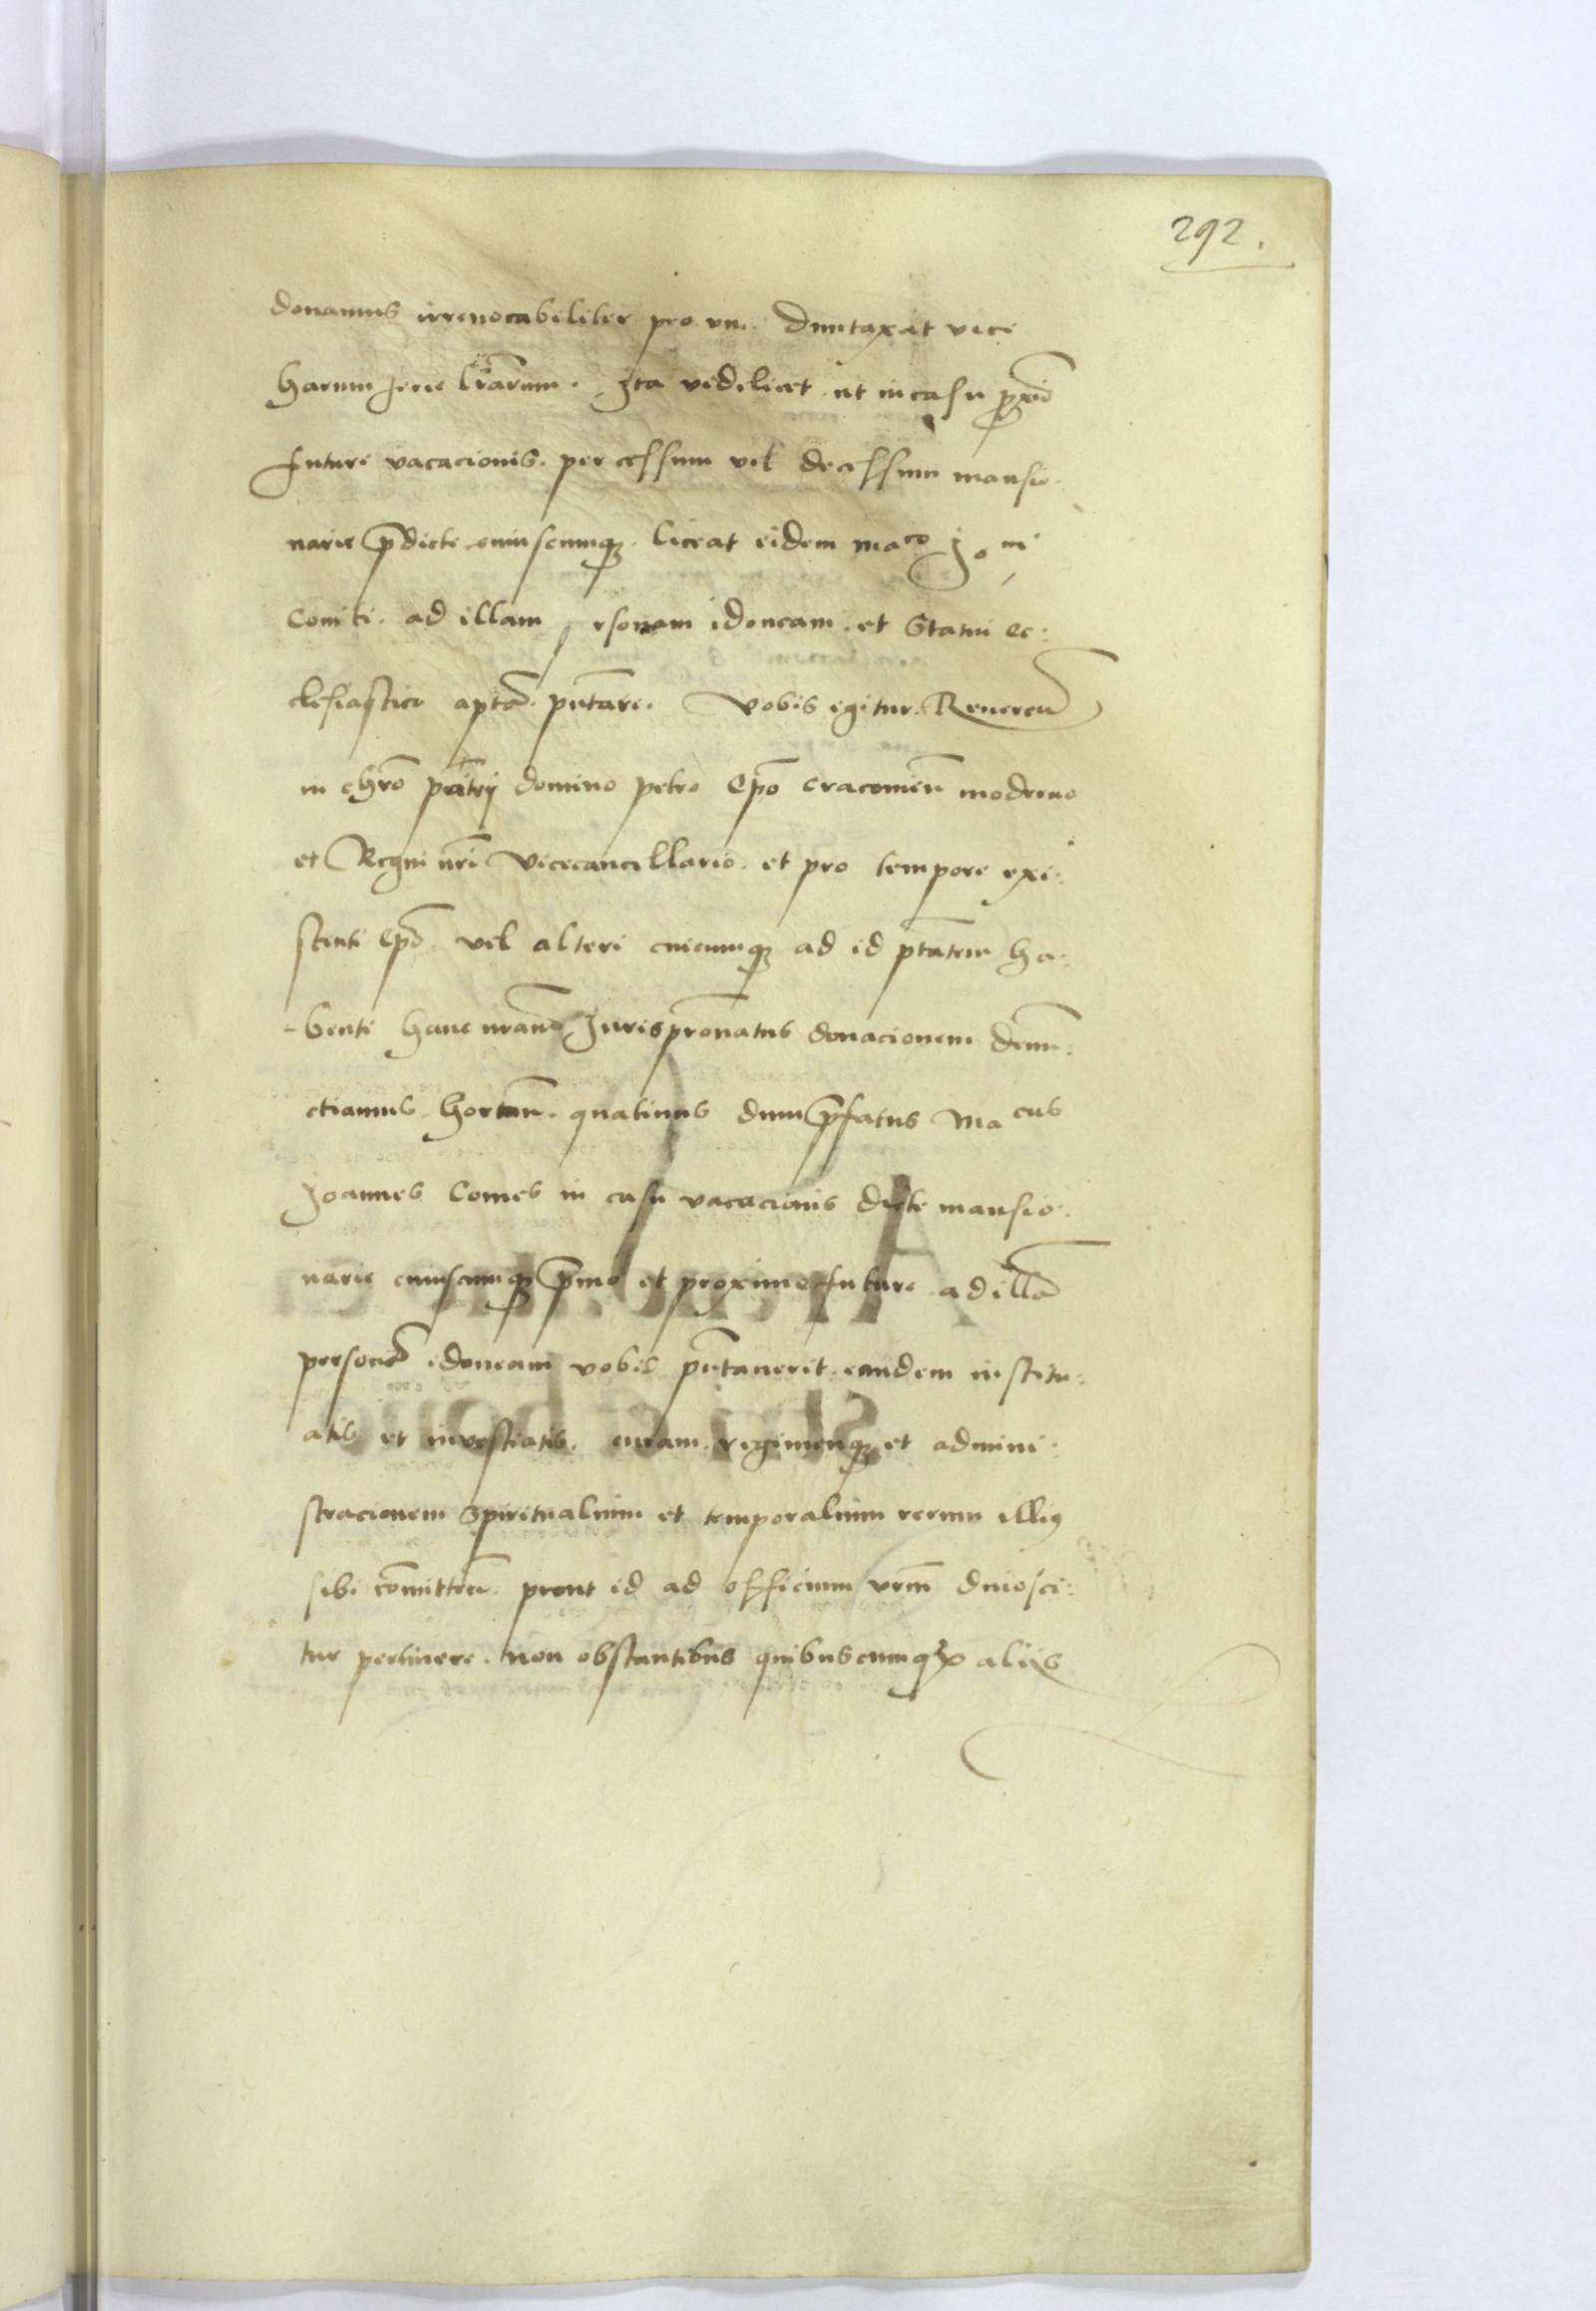 292.
donamus irrevocabiliter pro un. Duntaxat vice
harum serie lrarum. Ita videlicet ut in casu prox
future vacacionis. per cessum vel decessum mansio
narie pdicte cuiuscumq liceat eidem maco Jo ni
Comiti. ad illam rsonam idoneam. et Statui ec:
clesiastico apta. pntare. Vobis igitur. Reveren
in chro patri domino petro Epo cracovien moderno
et Regni nri Vicecancellario. et pro tempore exi:
stenti Epo. vel alteri cuicumq ad id ptatem ha:
-benti hanc nram Jurispronatus donacionem denu:
ctiamus. hortan. quatinus dum pfatus Ma cus
Joannes Comes in casu vacacionis dicte mansio.
narie cuiuscumq pmo et proxime future ad illa
persona idoneam vobis pntaverit. eandem institu:
atis et investiatis. curam. regimenq et admini:
stracionem Spiritualium et temporalium rerum illius
sibi comitten. prout id ad officium vrm dniosci:
tur pertinere. Non obstantibus quibuscumq aliis